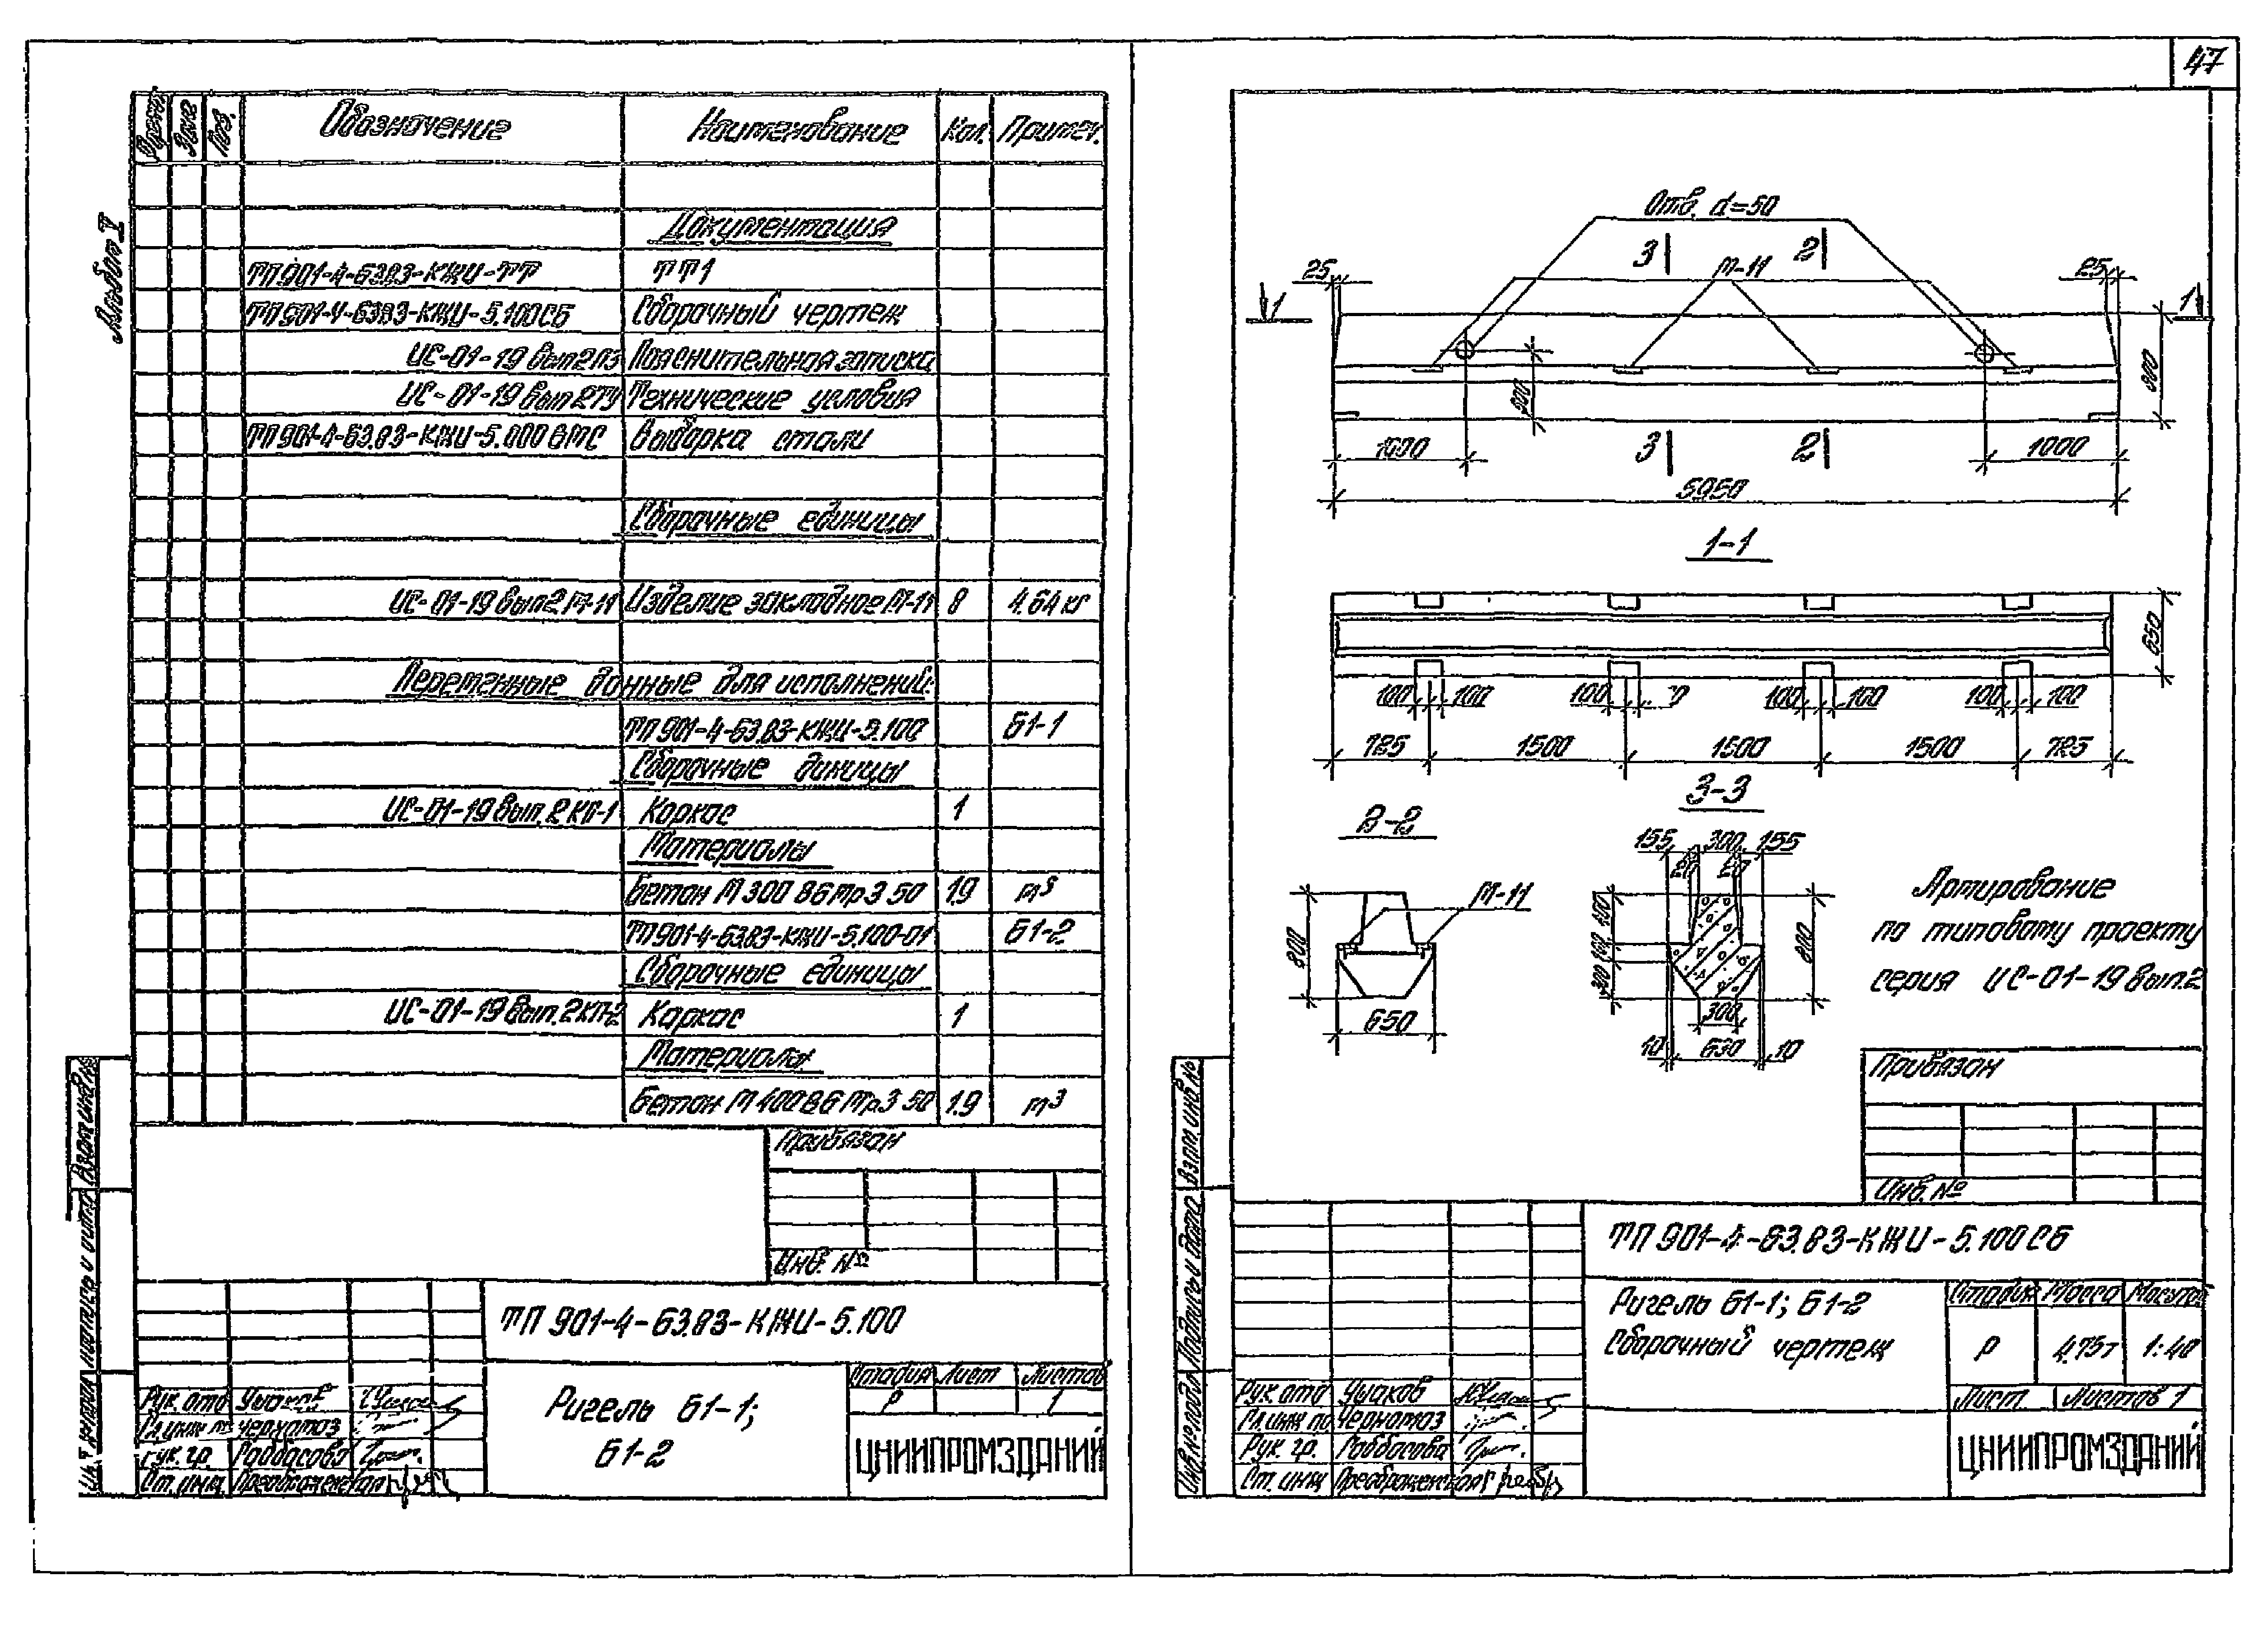 47
Альбом V
Формат Зона Поз. Обозначение Наименование Кол. Примеч.
Документация
ТП901-4-63.83-КЖИ-ТТ ТТ1
ТП901-4-63.83-КЖИ-5.100СБ Сборочный чертеж
ИС-01-19 вып2ПЗ Пояснительная записка
ИС-01-19 вып 2ТУ Технические условия
ТП901-4-63.83-КЖИ-5.000ВМС Выборка стали
Сборочные единицы
ИС-01-19 вып2 М-11 Изделие закладное М-11 8 4.64 кг
Переменные данные для исполнений:
ТП901-4-63.83-КЖИ-5.100 Б1-1
Сборочные диницы
ИС-01-19 вып. 2 КП-1 Каркас 1
Материалы
Бетон М 300 В6 Мрз 50 1.9 м³
ТП901-4-63.83-КЖИ-5.100-01 Б1-2
Сборочные единицы
ИС-01-19 вып. 2 КП-2 Каркас 1
Материалы
Бетон М 400 В6 Мрз 50 1.9 м³
Привязан
Инв. №
ТП 901-4-63.83-КЖИ-5.100
Ригель Б1-1;
Б1-2
Стадия Лист Листов
Р 1
ЦНИИПРОМЗДАНИЙ
Рук. отд Ушаков
Гл. инж пр Черномаз
Рук. гр. Габбасова
Ст. инж. Преображенская
Взам инв №
Подпись и дата
Инв. № подл
Отв. d=50
3 2
М-11
25 25
1 1
300 800
3 2
1000 1000
5950
1-1
650
100 100 100 100 100 100 100
725 1500 1500 1500 725
2-2
М-11
800
650
3-3
155 300 155
20 20
400 100 300
800
300
10 630 10
Армирование
по типовому проекту
серия ИС-01-19 вып.2
Привязан
Инв. №
ТП 901-4-63.83-КЖИ-5.100СБ
Ригель Б1-1; Б1-2
Сборочный чертеж
Стадия Масса Масштаб
Р 4.75т 1:40
Лист Листов 1
ЦНИИПРОМЗДАНИЙ
Рук. отд Ушаков
Гл. инж пр Черномаз
Рук. гр. Габбасова
Ст. инж Преображенская
Взам инв №
Подпись и дата
Инв. № подл